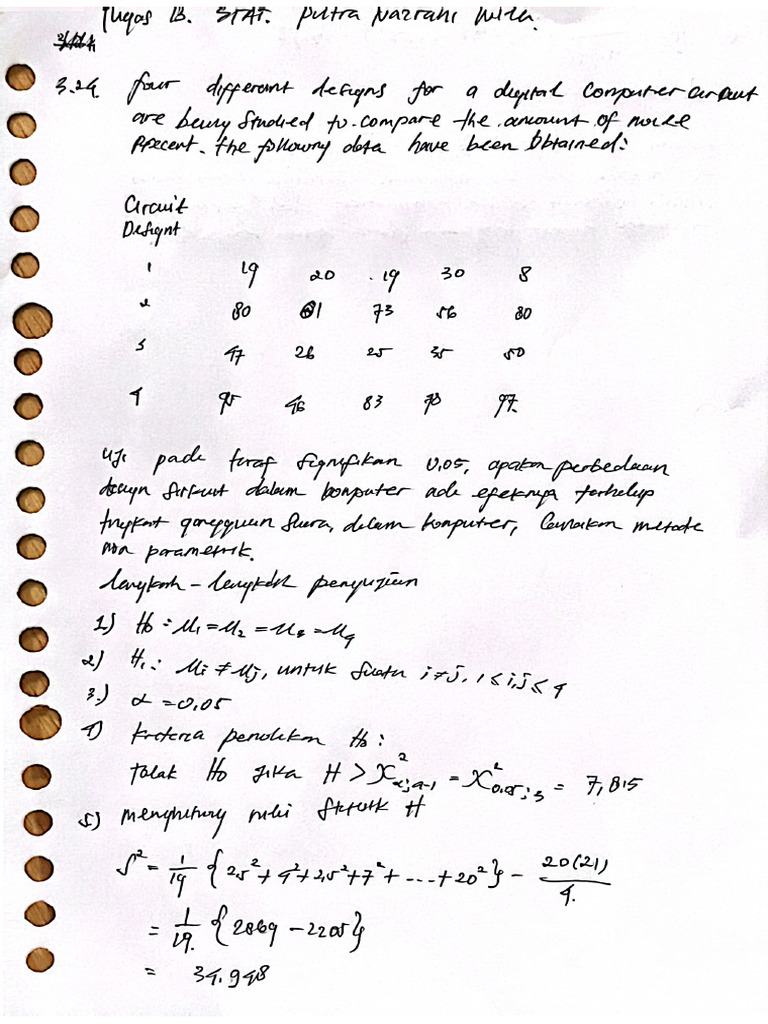 Tugas B. STAT. Putra Nazrahi
3.24 four different designs for a digital Computer circuit
are being Studied to compare the amount of noise
Precent. the following data have been Obtained:
Circuit
Designt
1 19 20 19 30 8
2 80 61 73 56 80
3 47 26 25 35 50
4 95 46 83 78 97
Uji pada taraf Signifikan 0,05, apakah perbedaan
design Sirkuit dalam komputer ada efeknya terhadap
tingkat gangguan Suara, dalam komputer, Gunakan metode
non parametrik.
langkah-langkah pengujian
1) H0 = M1 = M2 = M3 = M4
2) H1: Mi ≠ Mj, untuk Suatu i≠j, 1 ≤ i,j ≤ 4
3.) α = 0,05
4) kriteria penolakan H0:
tolak H0 Jika H > X²α;a-1 = X²0,05;3 = 7,815
5) menghitung nilai Statistik H
S² = 1/19 {2,5² + 4² + 2,5² + 7² + ... + 20²} - 20(21)/4.
= 1/19. {2869 - 2205}
= 34.948